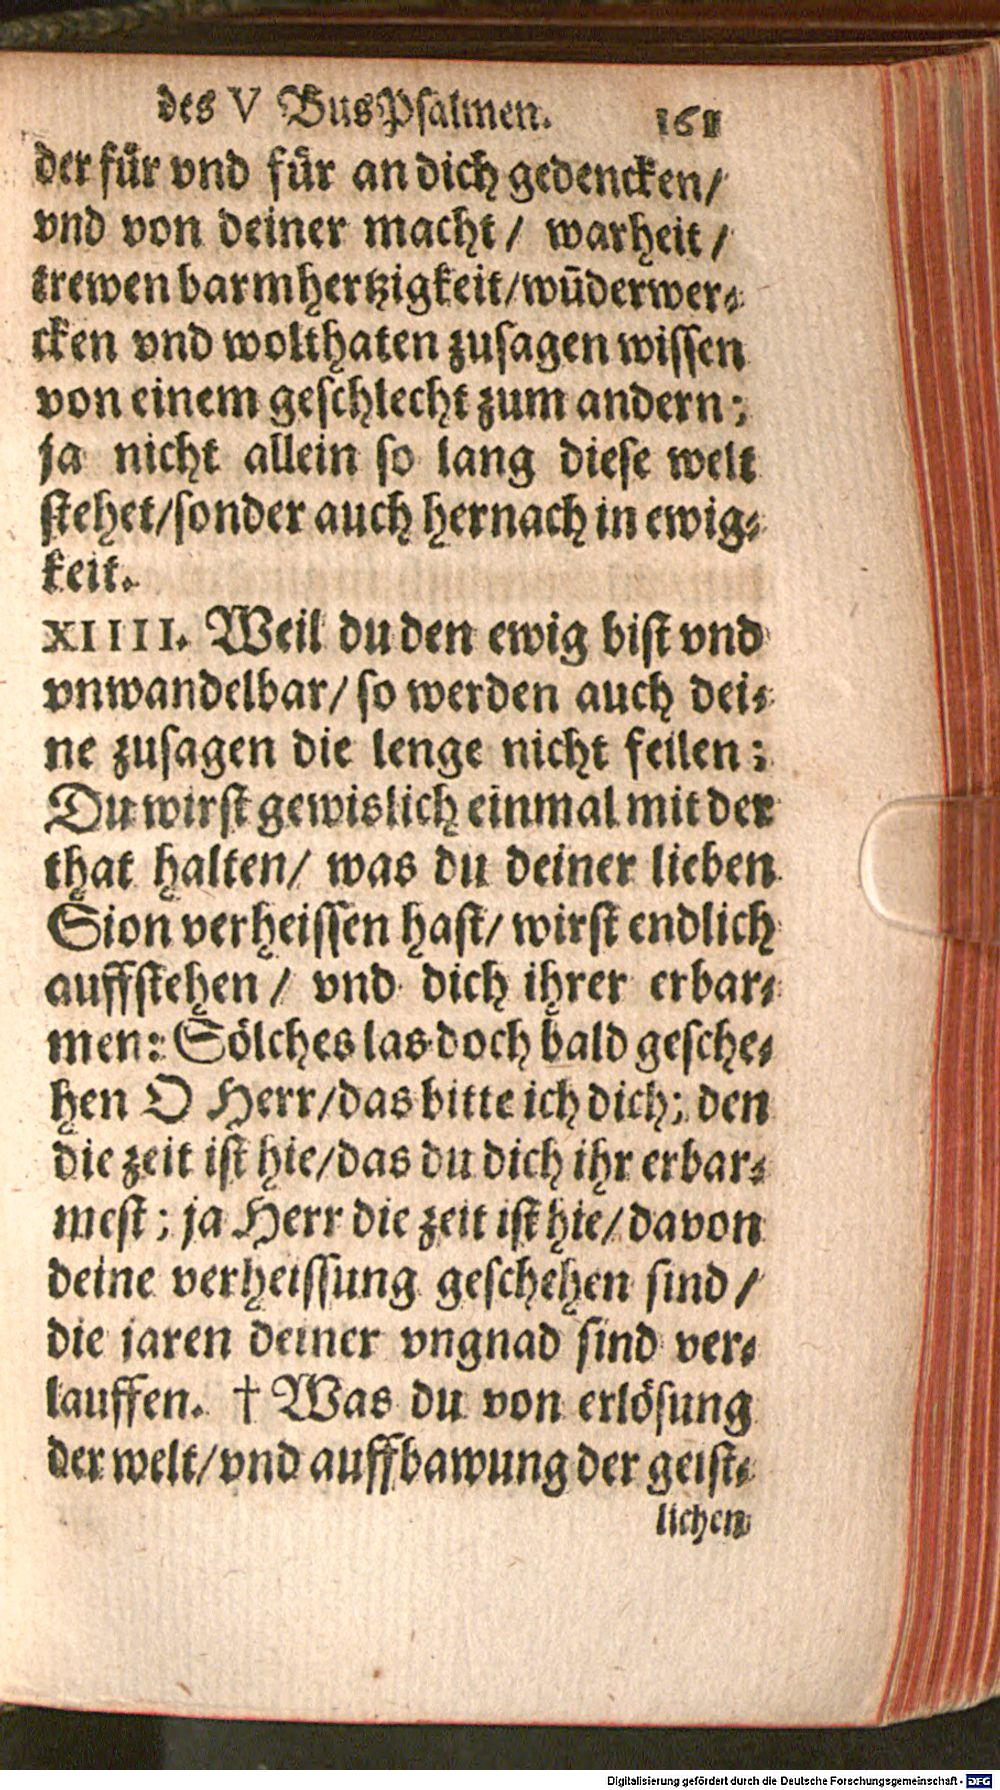 des V BusPsalmen. 161
der für vnd für an dich gedencken/
vnd von deiner macht / warheit /
trewen barmhertzigkeit/wūderwer⸗
cken vnd wolthaten zusagen wissen
von einem geschlecht zum andern;
ja nicht allein so lang diese welt
stehet/sonder auch hernach in ewig⸗
keit.
XIIII. Weil du den ewig bist vnd
vnwandelbar/ so werden auch dei⸗
ne zusagen die lenge nicht feilen;
Du wirst gewislich einmal mit der
that halten/ was du deiner lieben
Sion verheissen hast/ wirst endlich
auffstehen / vnd dich ihrer erbar⸗
men: Sölches las doch bald gesche⸗
hen O Herr/das bitte ich dich; den
die zeit ist hie/das du dich ihr erbar⸗
mest; ja Herr die zeit ist hie/ davon
deine verheissung geschehen sind /
die jaren deiner vngnad sind ver⸗
lauffen. † Was du von erlösung
der welt/vnd auffbawung der geist⸗
lichen
Digitalisierung gefördert durch die Deutsche Forschungsgemeinschaft - DFG